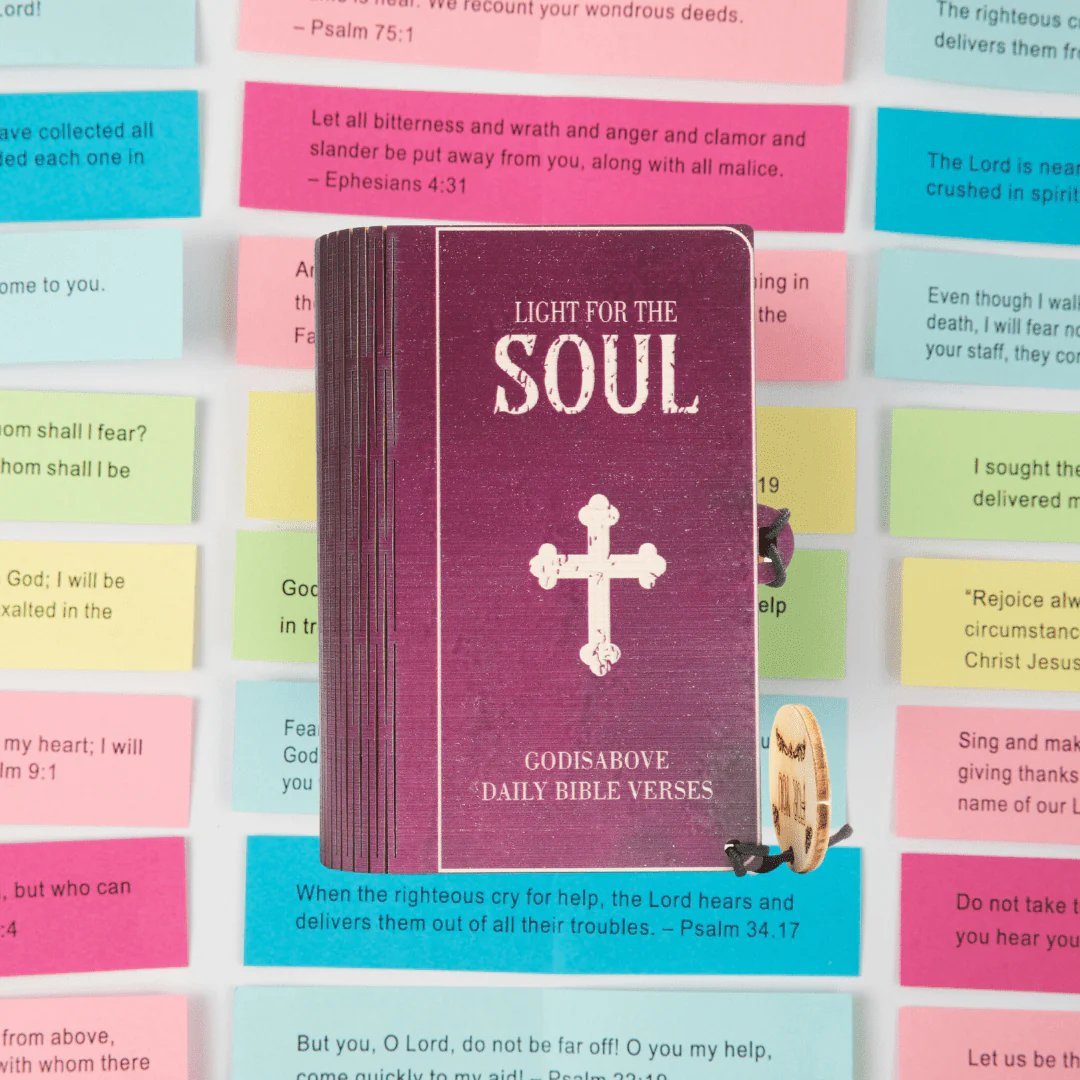 ord!
is near. We recount your wondrous deeds.
– Psalm 75:1
The righteous c
delivers them fro
ave collected all
ded each one in
Let all bitterness and wrath and anger and clamor and
slander be put away from you, along with all malice.
– Ephesians 4:31
The Lord is near
crushed in spirit
ome to you.
An
the
Fa
ing in
the
Even though I walk
death, I will fear no
your staff, they com
LIGHT FOR THE
SOUL
om shall I fear?
hom shall I be
19
I sought the
delivered m
God; I will be
xalted in the
God
in tr
elp
"Rejoice alw
circumstanc
Christ Jesus
my heart; I will
lm 9:1
Fea
God
you
u
Sing and mak
giving thanks
name of our L
GODISABOVE
DAILY BIBLE VERSES
, but who can
:4
When the righteous cry for help, the Lord hears and
delivers them out of all their troubles. – Psalm 34.17
Do not take t
you hear you
from above,
with whom there
But you, O Lord, do not be far off! O you my help,
come quickly to my aid! – Psalm 22:19
Let us be th